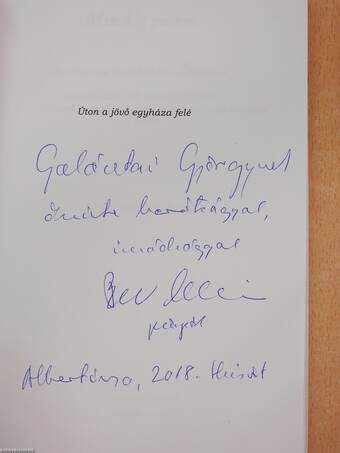 Úton a jövő egyháza felé
Galántai Györgynek
őszinte barátsággal,
imádsággal
püspök
Albertirsa, 2018. Húsvét